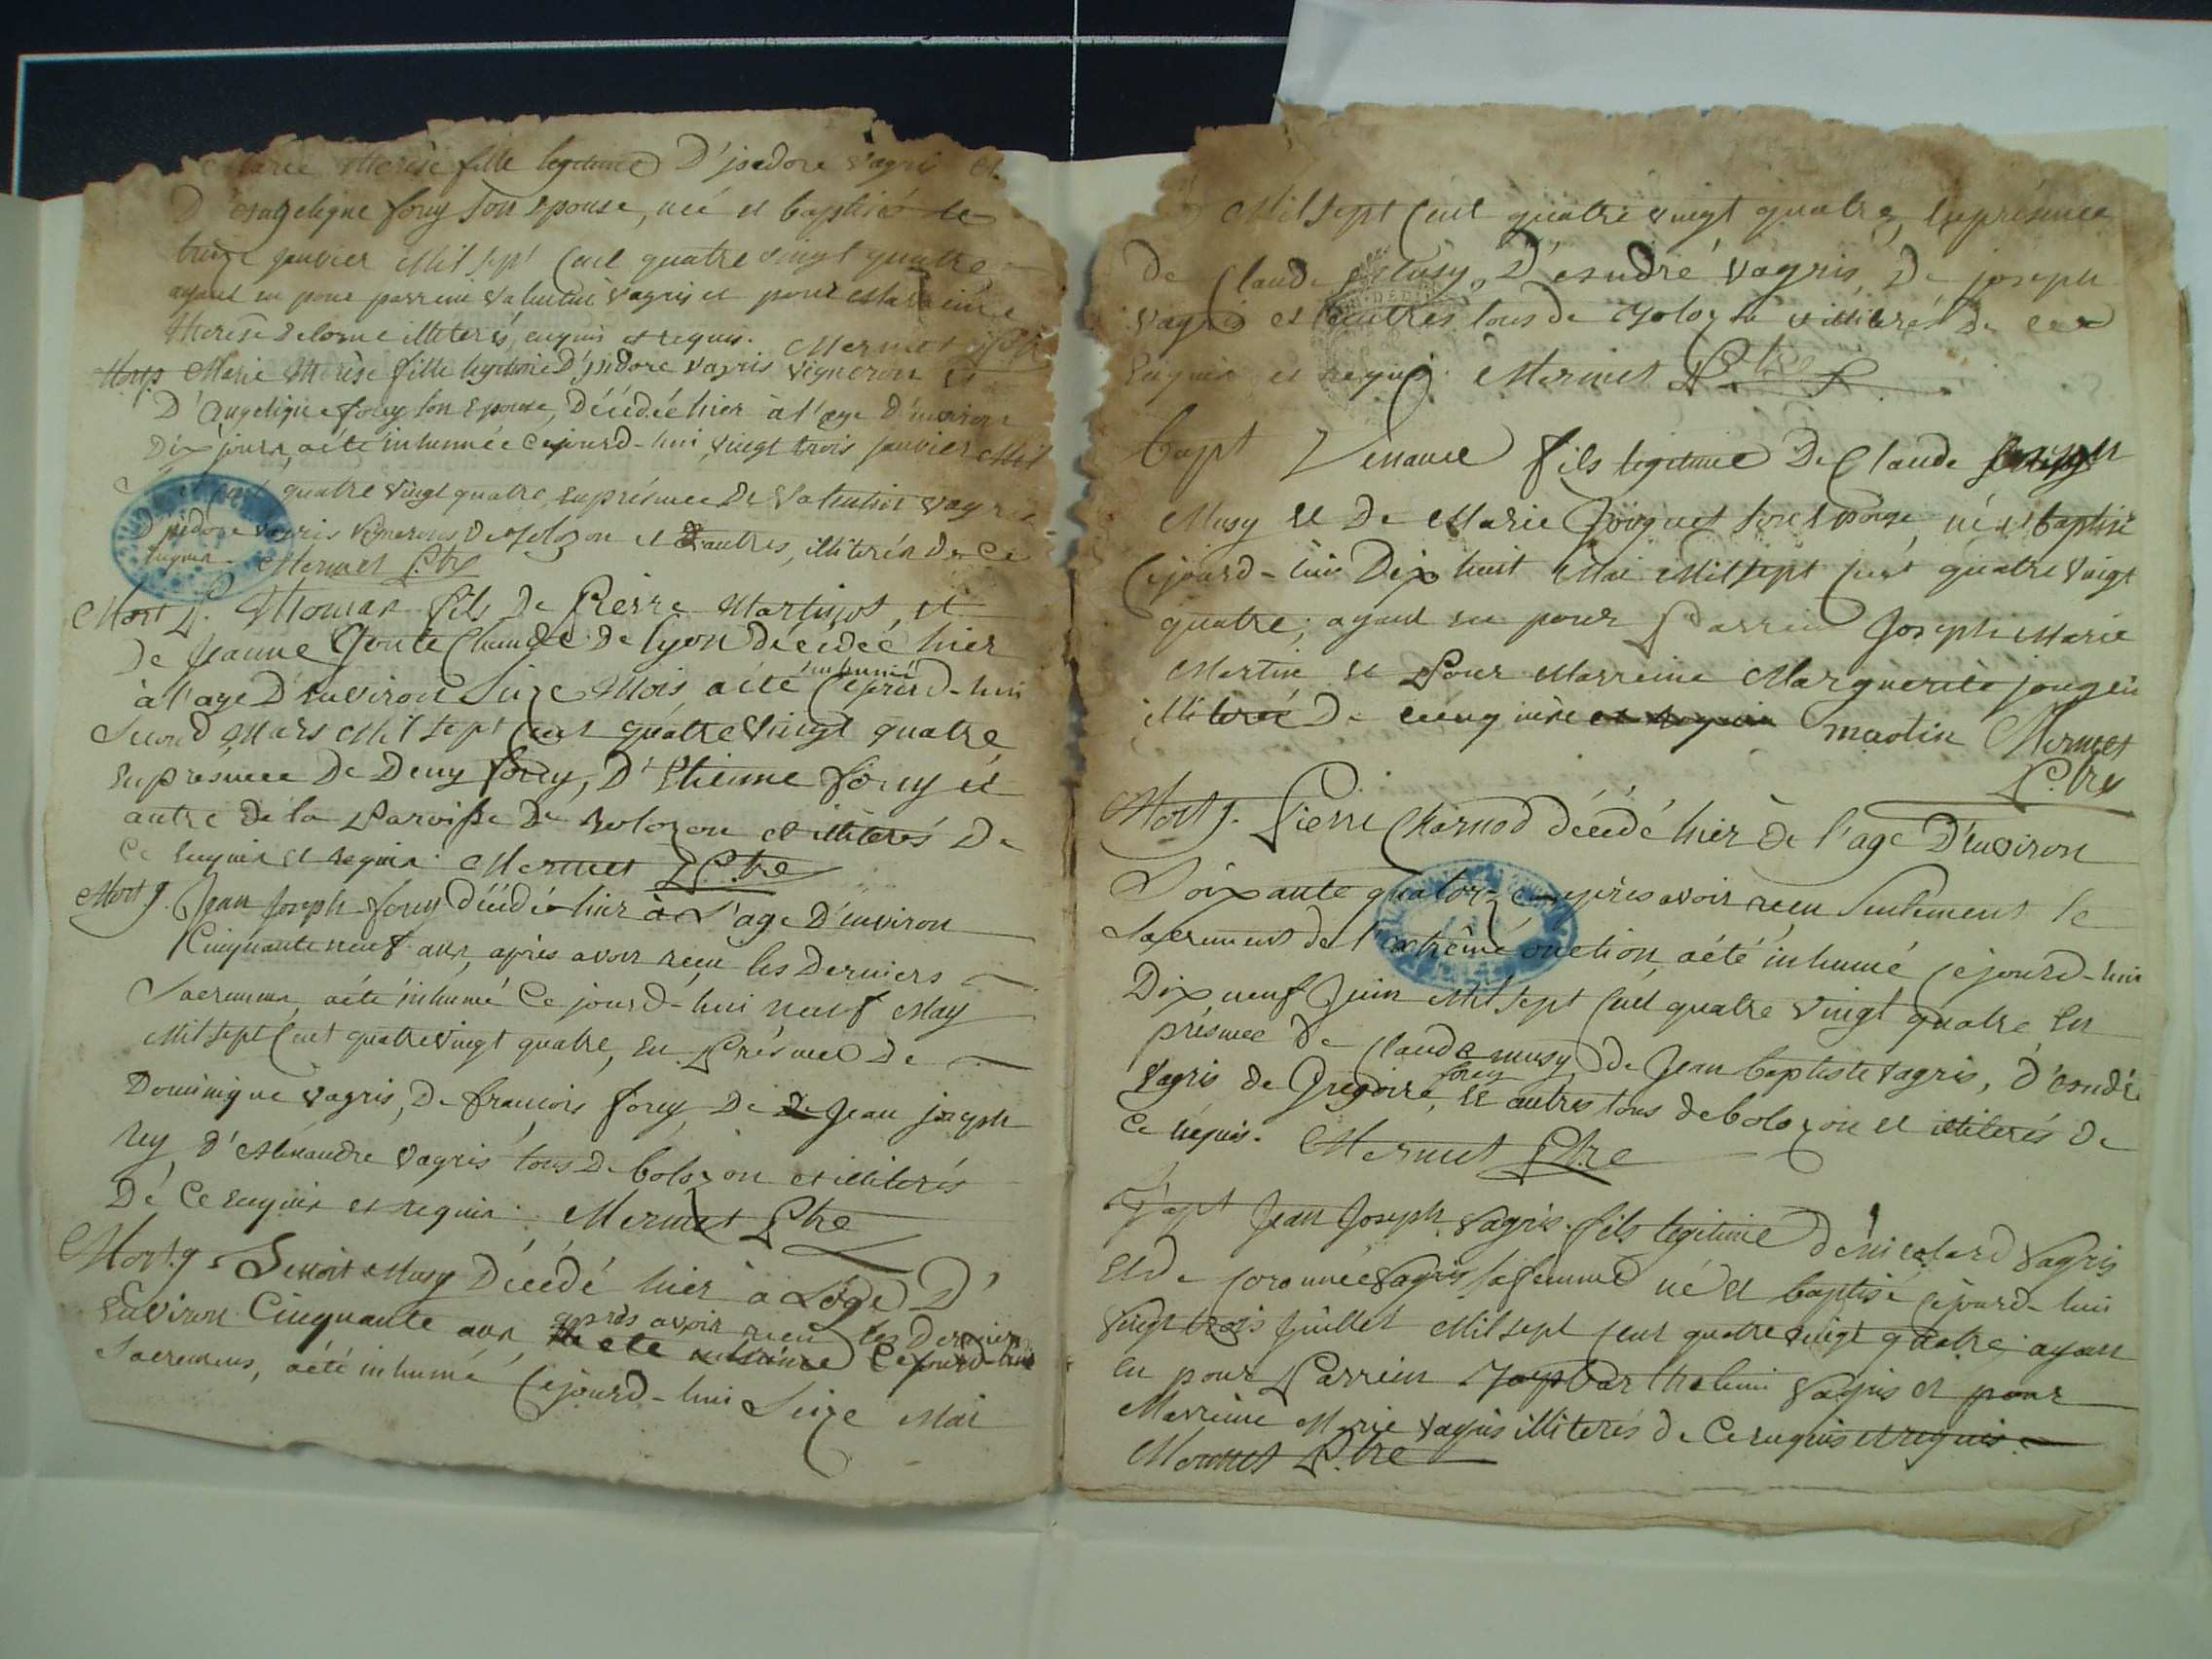 Marie Therèse fille legitime D'jsidore vagris et
D'Angeligne forey son Epouse, née et baptisée le
treize janvier Mil sept Cent quatre vingt quatre
ayant eu pour parrein valentin vagris et pour Marreine
Therese Delorme illiterés, enquis et requis. Mermet
Marie Therèse fille legitime D'jsidore vagris vigneron et
D'Angelique forey son Epouse, Décédée hier à l'age D'environ
Dix jours, a été inhumée Cejourd-hui vingt trois janvier Mil
quatre vingt quatre, en présence De valentin vagris
D'jsidore vagris vignerons De Bolozon et D'autres, illiterés De Ce
enquis. Mermet P.tre
Mort J. Thomas fils De Pierre Martinot, et
De Jeanne Claude De lyon Décédée hier
à l'age D'environ Seize Mois a été inhumé Cejourd-hui
Second Mars Mil sept cent quatre vingt quatre
En présence De Deny forey, D'Etienne forey et
autre de la Paroisse De bolozon et illiterés De
Ce enquis et requis. Mermet P.tre
Mort J. Jean Joseph forey Décédé hier à L'age D'environ
Cinquante neuf ans, après avoir reçu les Derniers
Sacremens, a été inhumé Ce jourd-hui neuf May
Mil sept Cent quatre vingt quatre, en Présence De
Dominique vagris, De francois forey, De De Jean joseph
rey D'Alexandre vagris tous De bolozon et illiterés
De Ce enquis et requis. Mermet P.tre
Mort J. Benoit Musy Décédé hier à L'age D'
Environ Cinquante ans, après avoir reçu les Derniers
a été inhumé Cejourd-hui
Sacremens, a été inhumé Cejourd-hui Seize Mai
Mil sept Cent quatre vingt quatre, en présence
De Claude Musy, D'André vagris, De joseph
vagris et autres tous de Bolozon illiterés De ce
Enquis et requis. Mermet P.tre
Bapt Venance fils legitime De Claude
Musy et De Marie son Epouse, né et baptisé
Cejourd-hui Dix huit Mai Mil sept Cent quatre vingt
quatre; ayant eu pour Parrein Joseph Marie
Martin et Pour Marreine Marguerite
illiterée De martin Mermet
P.tre
Mort J. Pierre Charnod décédé hier De l'age D'environ
Soixante quatorze après avoir reçu Seulement le
Sacrement de l'extrême onction, a été inhumé Cejourd-hui
Dix neuf Juin Mil sept Cent quatre vingt quatre en
présence De Claude musy, De Jean baptiste vagris, D'André
vagris de Gregoire forey, et autres tous de bolozon et illiterés De
Ce requis. Mermet P.tre
Bapt Jean Joseph vagris fils legitime De nicolard vagris
Et De vagris sa femme né et baptisé Cejourd-hui
vingt trois Juillet Mil sept Cent quatre vingt quatre ayant
eu pour Parrein vagris et pour
Marreine Marie vagris illiterés De Ce enquis et requis.
Mermet P.tre